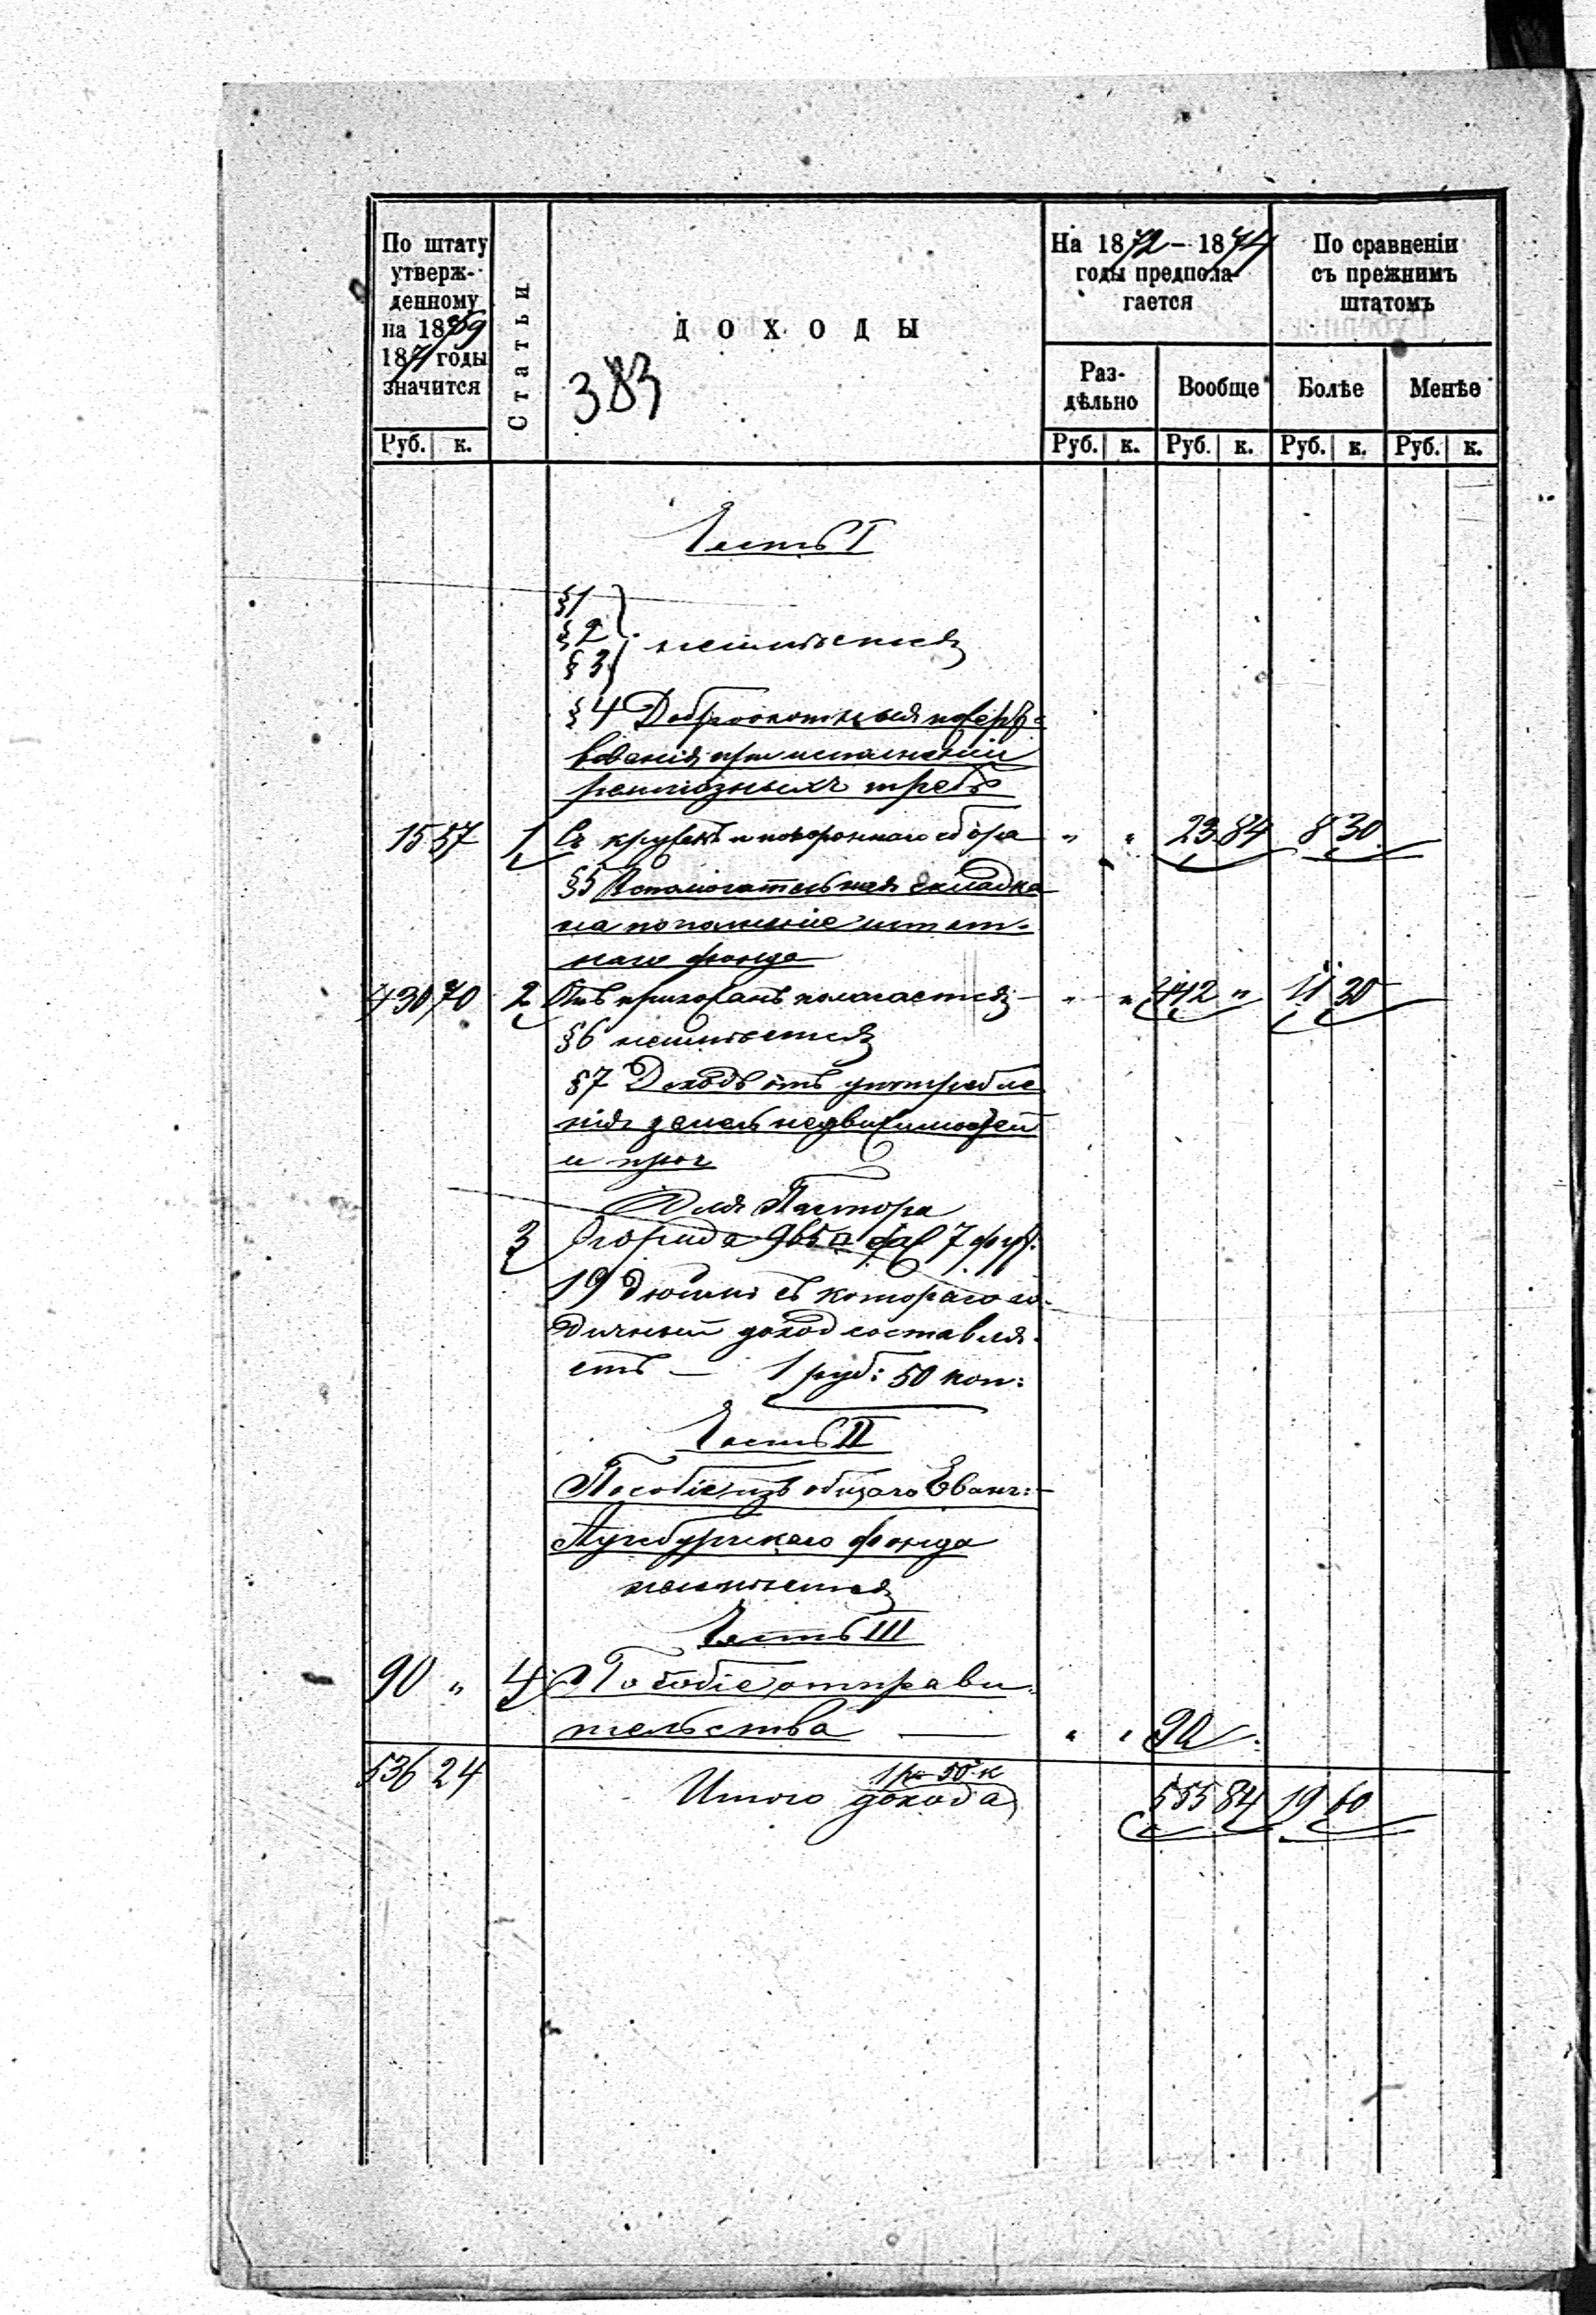 По штату
утверж-
денному
на 1869
1871 годы
значится
Руб. к.
Статьи
ДОХОДЫ
383
На 1872 - 1874
годы предпола-
гается
Раз-
дѣльно
Вообще
Руб. к. Руб. к.
По сравненіи
съ прежнимъ
штатомъ
Болѣе Менѣе
Руб. к. Руб. к.
Часть I
§1
§2 неимѣется
§3
§4 Доброохотныя пожерт-
вованія при исполненіи
религіозныхъ требъ
15 57 1 Съ кружекъ и похороннаго сбора " " 23 84 8 30
§5 Вспомогательная складка
на пополненіе штат-
наго фонда
430 70 2 Отъ прихожанъ полагается - " " 442 " 11 30
§6 неимѣется
§7 Доходъ отъ употребле
нія земель недвижимостей
и проч
Для Пастора
3 Огорида 965 7 фут.
19 дюйм съ котораго го-
дичный доход составля-
етъ — 1 руб: 50 коп:
Часть II
Пособіе изъ общаго Еванг:-
Аугсбургскаго фонда
неимѣется
Часть III
90 " 4 Пособіе отправи-
тельства — " " 90
1 р 50 к
536 24 Итого дохода 555 84 19 60